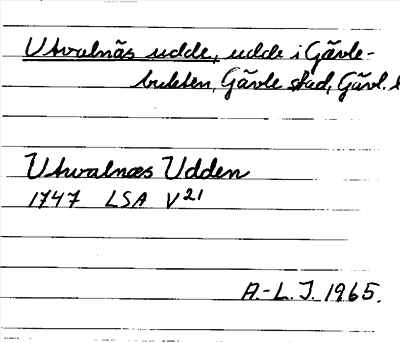 Utvalnäs udde, udde i Gävle-
bukten, Gävle stad, Gävl. l
Utwalnæs Udden
1747 LSA V21
A.-L. J. 1965.